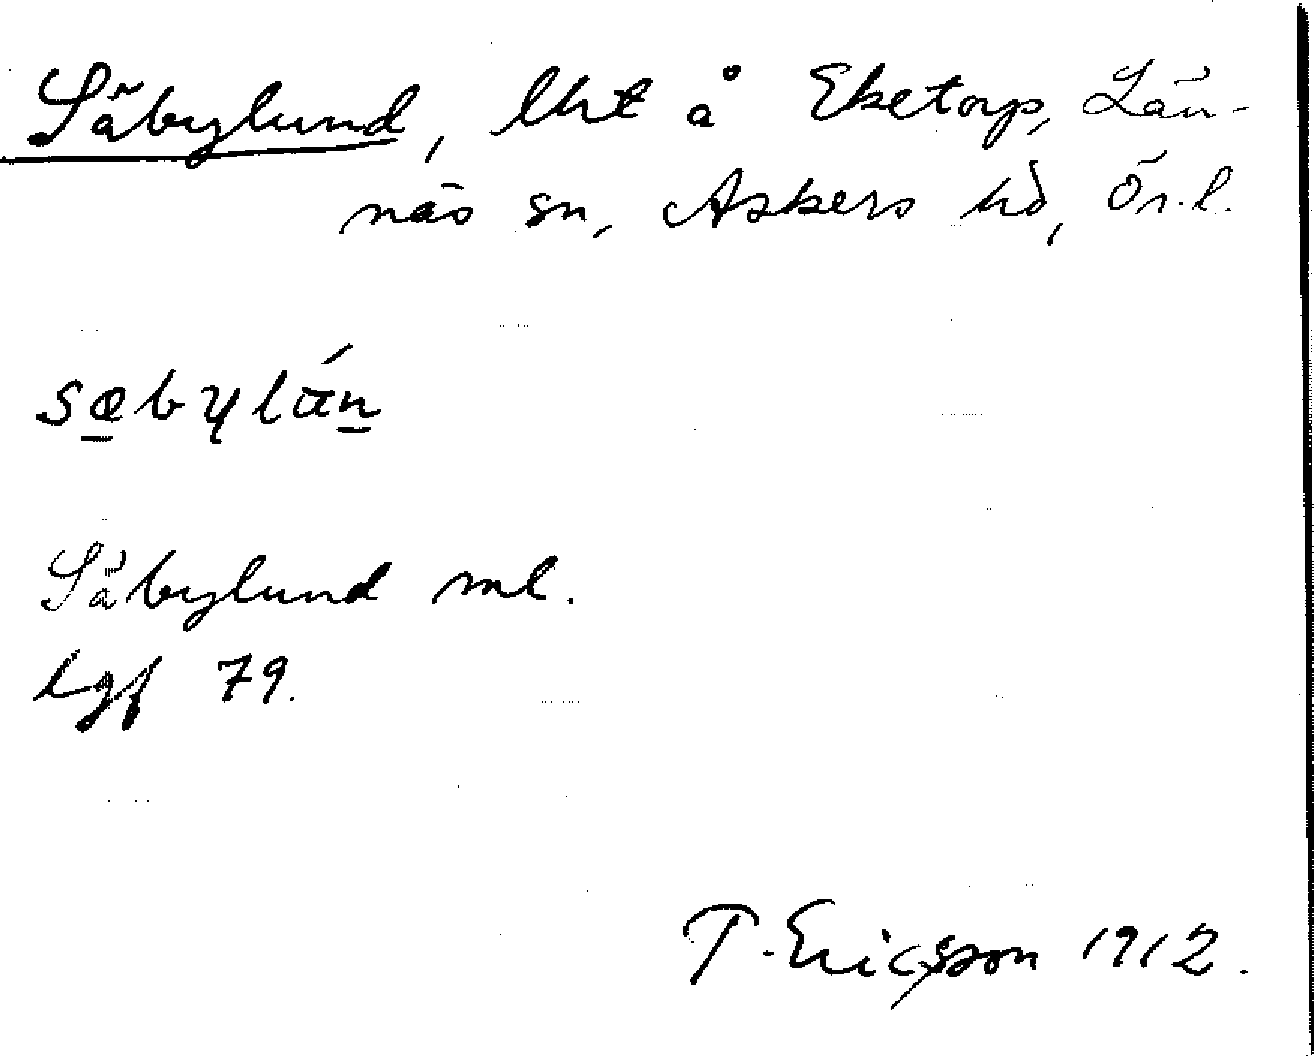 Säbylund, lht å Eketorp, Län-
näs sn, Askers hd, Ör.l.
sæbylán
Säbylund ml.
lgf 79.
T. Ericsson 1912.